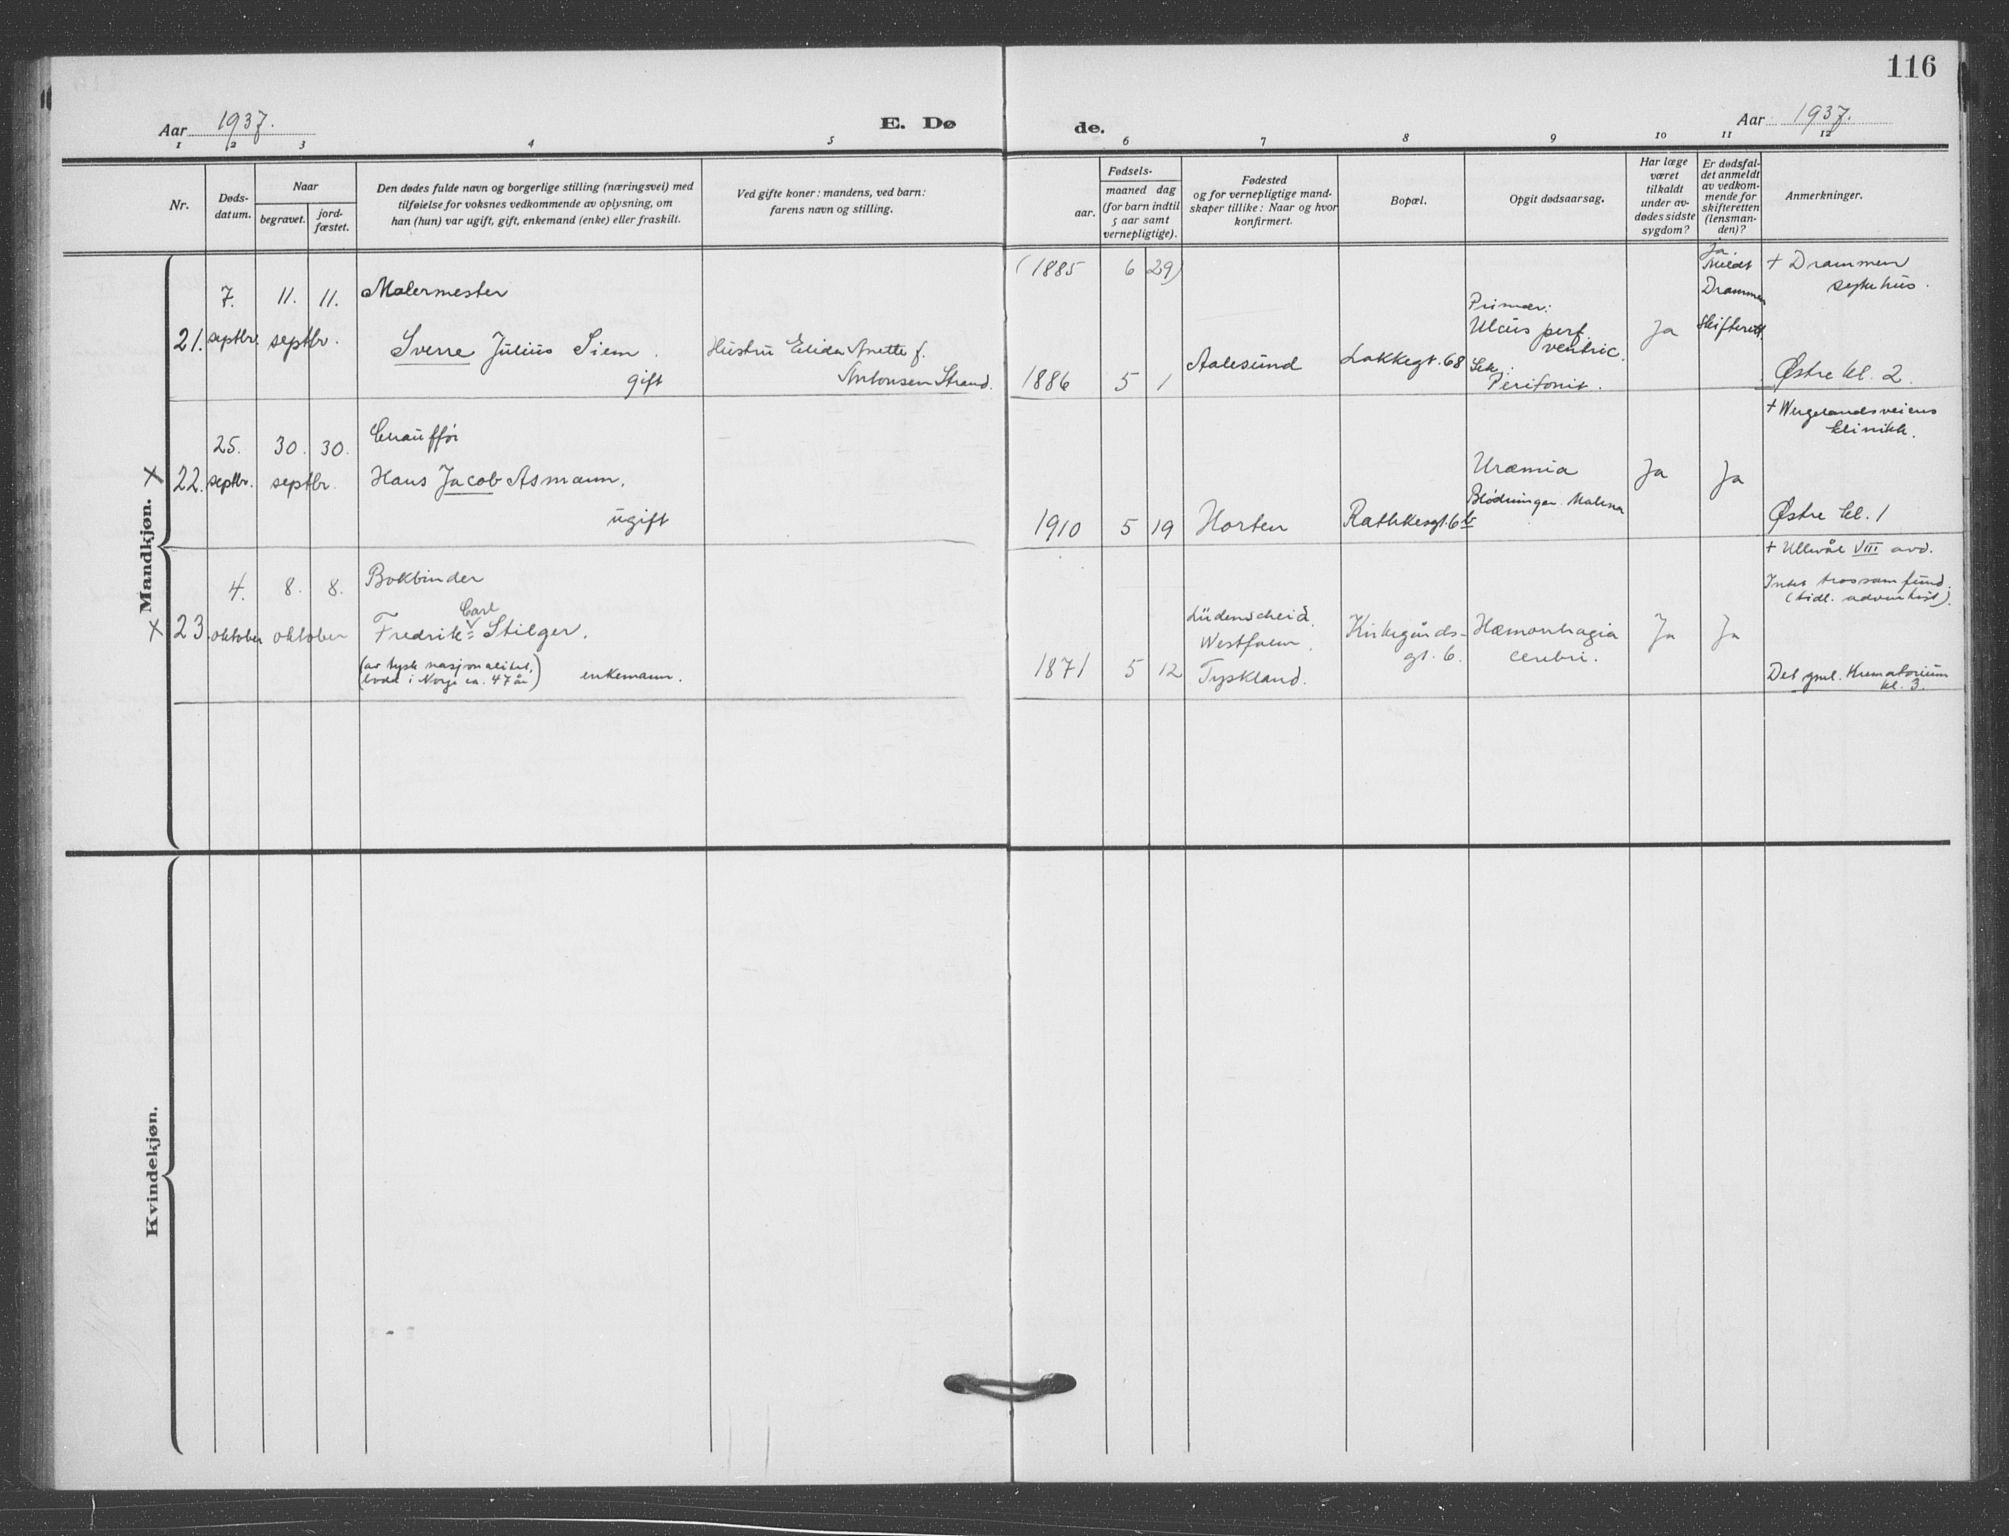 116
Aar 1937.
E. Dø
de.
Aar 1937.
1 2 3 4 5 6 7 8 9 10 11 12
Nr.
Døds-
datum.
Naar
begravet.
jord-
fæstet.
Den dødes fulde navn og borgerlige stilling (næringsvei) med
tilføielse for voksnes vedkommende av oplysning, om
han (hun) var ugift, gift, enkemand (enke) eller fraskilt.
Ved gifte koner: mandens, ved barn:
farens navn og stilling.
Fødsels-
aar.
maaned dag
(for barn indtil
5 aar samt
vernepligtige).
Fødested
og for vernepligtige mand-
skaper tillike: Naar og hvor
konfirmert.
Bopæl.
Opgit dødsaarsag.
Har læge
været
tilkaldt
under av-
dødes sidste
sygdom?
Er dødsfal-
det anmeldt
av vedkom-
mende for
skifteretten
(lensman-
den)?
Anmerkninger.
Mandkjøn.
21.
7.
septbr.
11. 11.
septbr.
Malermester
Sverre Julius Siem.
gift
Hustru Elida Anette f.
Antonsen Strand.
(1885 6 29)
1886 5 1
Aalesund
Lakkegt. 68
Primær:
Ulcus perf.
ventric.
Sek.:
Peritonit.
Ja
Ja.
Meldt
Drammen
Skifterett.
+ Drammen
sykehus.
Østre kl. 2.
X 22.
25.
septbr.
30. 30.
septbr.
Chauffør
Hans Jacob Asmann.
ugift
1910 5 19
Horten
Rathkesgt. 6 b
Uræmia
Blødninger. Malena
Ja
Ja
+ Wergelandsveiens
klinikk.
Østre kl. 1
X 23.
4.
oktober
8. 8.
oktober
Bokbinder
Carl
Fredrik Stilger.
(av tysk nasjonalitet,
bodd i Norge ca. 47 år)
enkemann.
1871 5 12
Lüdenscheid,
Westfalen,
Tyskland.
Kirkegårds-
gt. 6.
Hæmorrhagia
cerebri.
Ja
Ja
+ Ullevål VIII avd.
Intet trossamfund.
(tidl. adventist).
Det gml. Krematorium
kl. 3.
Kvindekjøn.